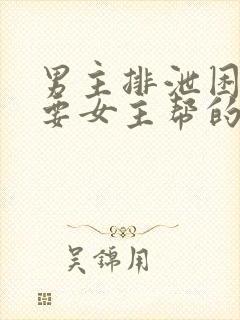 男主排泄困
要女主帮的
吴锦用